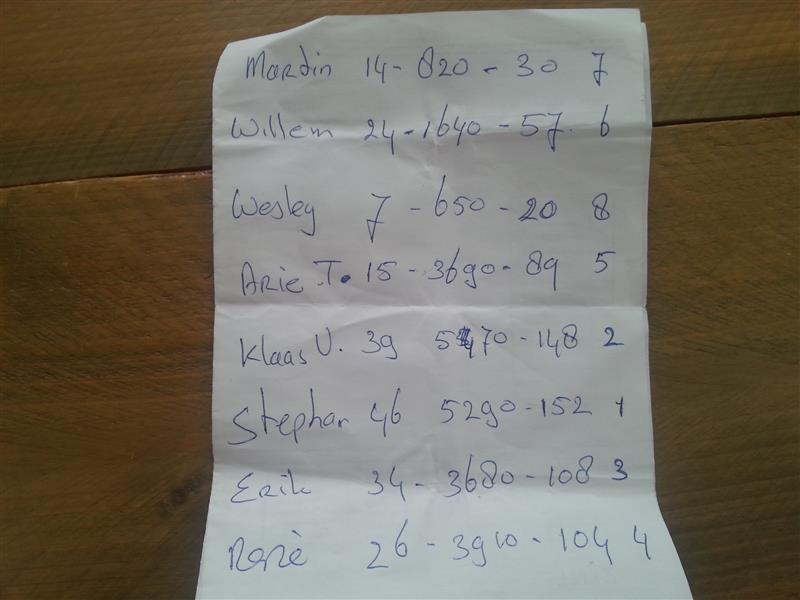 Martin 14 - 820 - 30 7
Willem 24 - 1640 - 57. 6
Wesley 7 - 650 - 20 8
Arie T. 15 - 3690 - 89 5
Klaas V. 39 5470 - 148 2
Stephan 46 5290 - 152 1
Erik 34 - 3680 - 108 3
Renè 26 - 3910 - 104 4